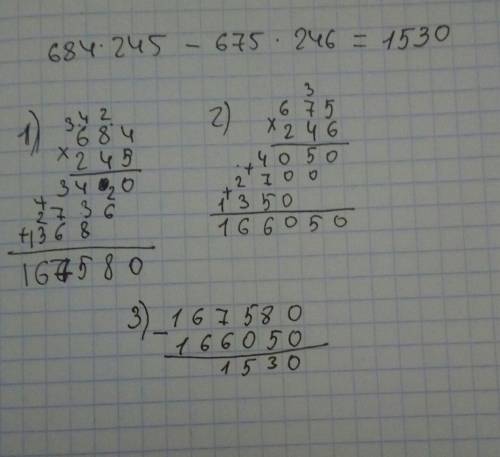 684·245 − 675·246 = 1530
1)
3 4 2
684
×245
3420
+2736
+1368
167580
2)
3
675
×246
4050
+2700
+1350
166050
3)
−167580
166050
1530